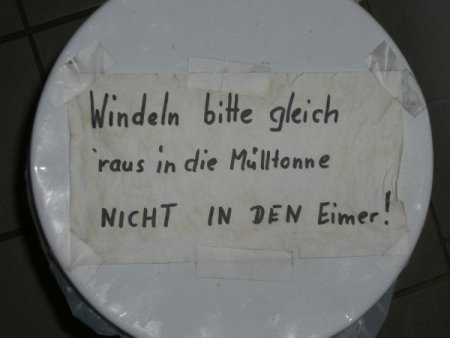 Windeln bitte gleich
'raus in die Mülltonne
NICHT IN DEN Eimer!